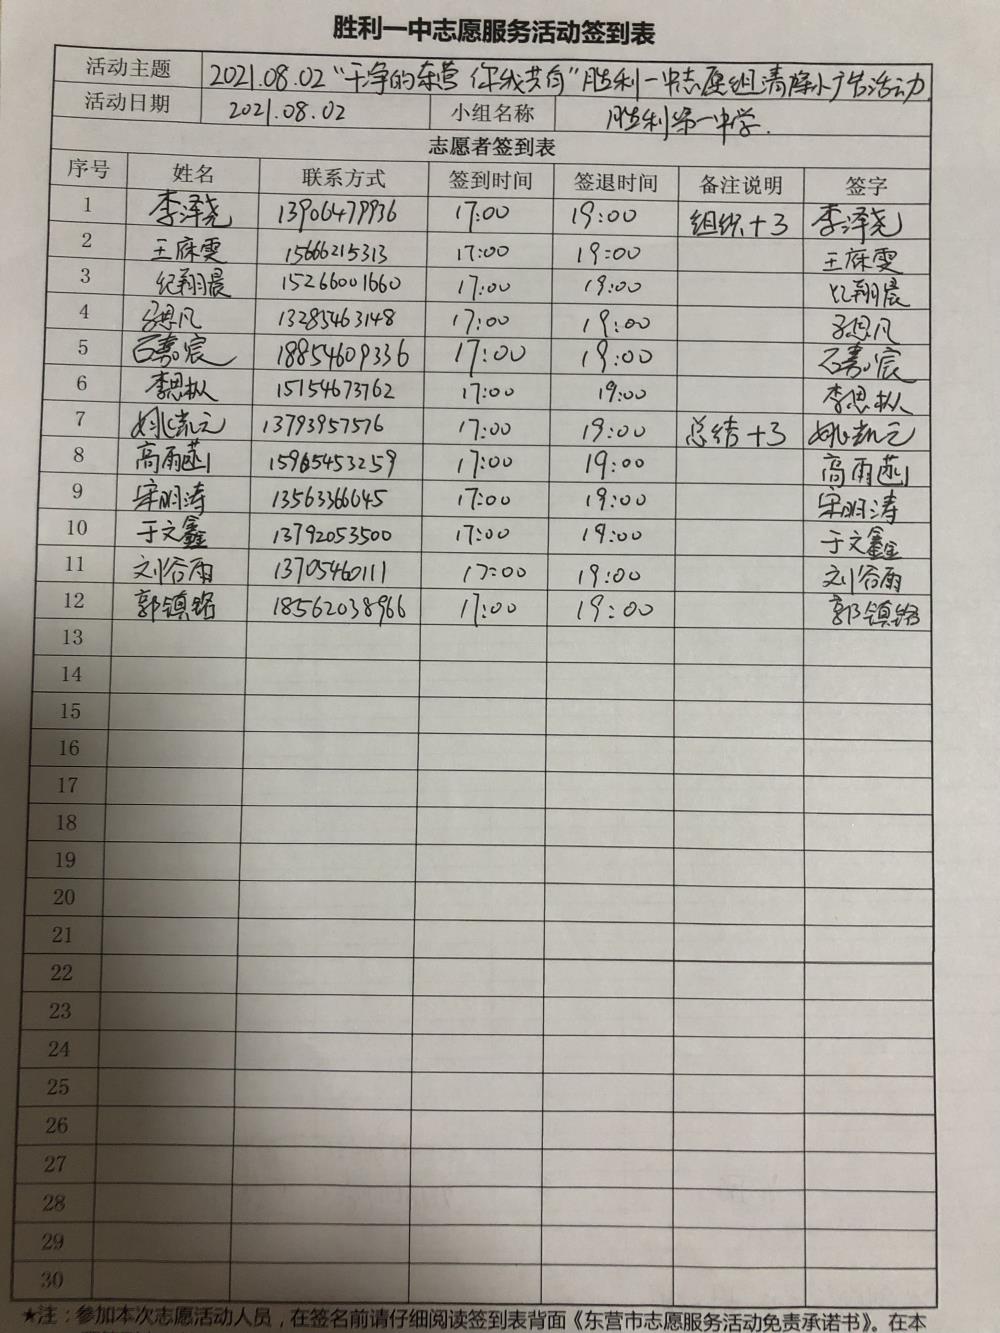 胜利一中志愿服务活动签到表
活动主题 2021.08.02“干净的东营 你我共有”胜利一中志愿组清除小广告活动
活动日期 2021.08.02 小组名称 胜利第一中学.
志愿者签到表
序号 姓名 联系方式 签到时间 签退时间 备注说明 签字
1 李泽尧 13906477936 17:00 19:00 组织+3 李泽尧
2 王庥雯 15666215313 17:00 19:00 王庥雯
3 纪翔晨 15266001660 17:00 19:00 纪翔晨
4 13285463148 17:00 19:00
5 石嘉宸 18854609336 17:00 19:00 石嘉宸
6 李思枞 15154673762 17:00 19:00 李思枞
7 姚凯元 13793957576 17:00 19:00 总结+3 姚凯元
8 高雨菡 15965453259 17:00 19:00 高雨菡
9 宋明涛 13563366645 17:00 19:00 宋明涛
10 于文鑫 13792053500 17:00 19:00 于文鑫
11 刘谷雨 13705460111 17:00 19:00 刘谷雨
12 郭镇铭 18562038966 17:00 19:00 郭镇铭
13
14
15
16
17
18
19
20
21
22
23
24
25
26
27
28
29
30
★注：参加本次志愿活动人员，在签名前请仔细阅读签到表背面《东营市志愿服务活动免责承诺书》。在本